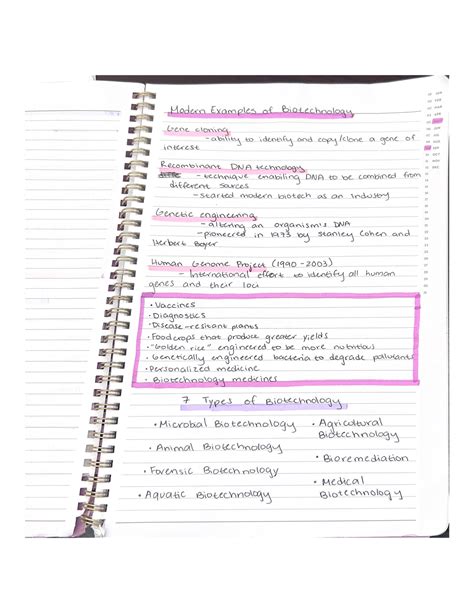 Modern Examples of Biotechnology
Gene cloning
- ability to identify and copy/clone a gene of
interest
Recombinant DNA technology
- technique enabiling DNA to be combined from
different sources
- started modern biotech as an industry
Genetic engineering
- altering an organism's DNA
- pioneered in 1973 by Stanley Cohen and
Herbert Boyer
Human Genome Project (1990-2003)
- International effort to identify all human
genes and their loci
• Vaccines
• Diagnostics
• Disease-resitant plants
• Foodcrops that produce greater yields
• "Golden rice" engineered to be more nutritious
• Genetically engineered bacteria to degrade pollutants
• Personalized medicine
• Biotechnology medicines
7 Types of Biotechnology
• Microbal Biotechnology
• Agricultural
Biotechnology
• Animal Biotechnology
• Bioremediation
• Forensic Biotechnology
• Medical
Biotechnology
• Aquatic Biotechnology